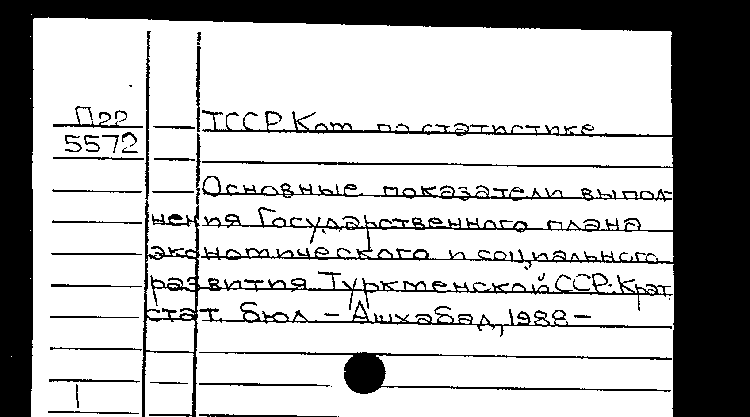 Пгр
5572
ТССР. Ком. по статистике
Основные показатели выпол-
нения Государственного плана
экономического и социального
развития Туркменской ССР: Крат.
стат. бюл. – Ашхабад, 1988 –